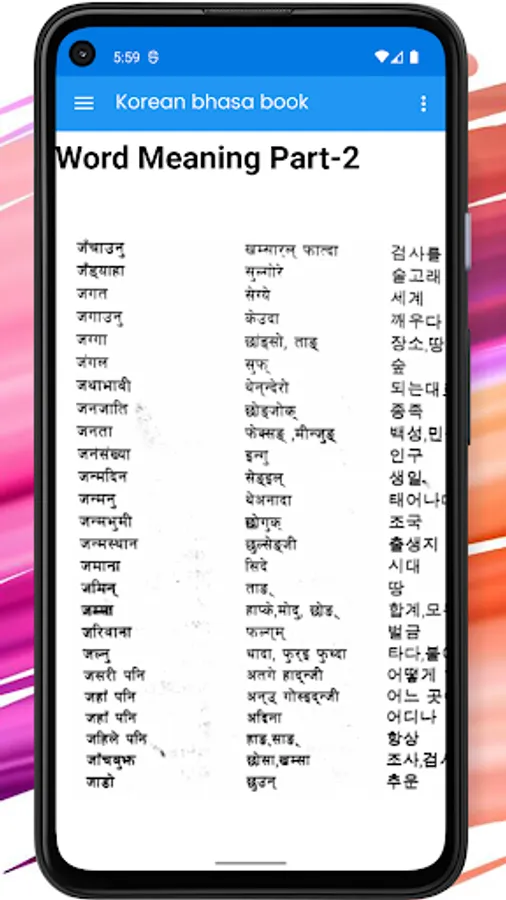 5:59
Korean bhasa book
Word Meaning Part-2
जँचाउनु खम्सारल् फाल्दा 검사를
जँड्याहा सुल्गोरे 술고래
जगत सेग्ये 세계
जगाउनु केउदा 깨우다
जग्गा छाङ्सो, ताङ् 장소,땅
जंगल सुफ् 숲
जथाभावी थेन्न्देरो 되는대로
जनजाति छोङ्जोक् 종족
जनता फेक्सङ् ,मीन्जुङ् 백성,민
जनसंख्या इन्गु 인구
जन्मदिन सेङ्इल् 생일
जन्मनु थेअनादा 태어나
जन्मभुमी छोगुक् 조국
जन्मस्थान छुल्सेङ्जी 출생지
जमाना सिदे 시대
जमिन् ताङ् 땅
जम्मा हाप्के,मोदु, छोङ् 합계,모
जरिवाना फल्गुम् 벌금
जल्नु थादा, फुर्इ फुथ्दा 타다,불
जसरी पनि अतगे हाद्न्जी 어떻게
जहाँ पनि अन्उ गोस्इद्न्जी 어느 곳
जहाँ पनि अदिना 어디나
जहिले पनि हाङ्,साङ् 항상
जाँचबुझ छोसा,खम्सा 조사,검사
जाडो छुउन् 추운